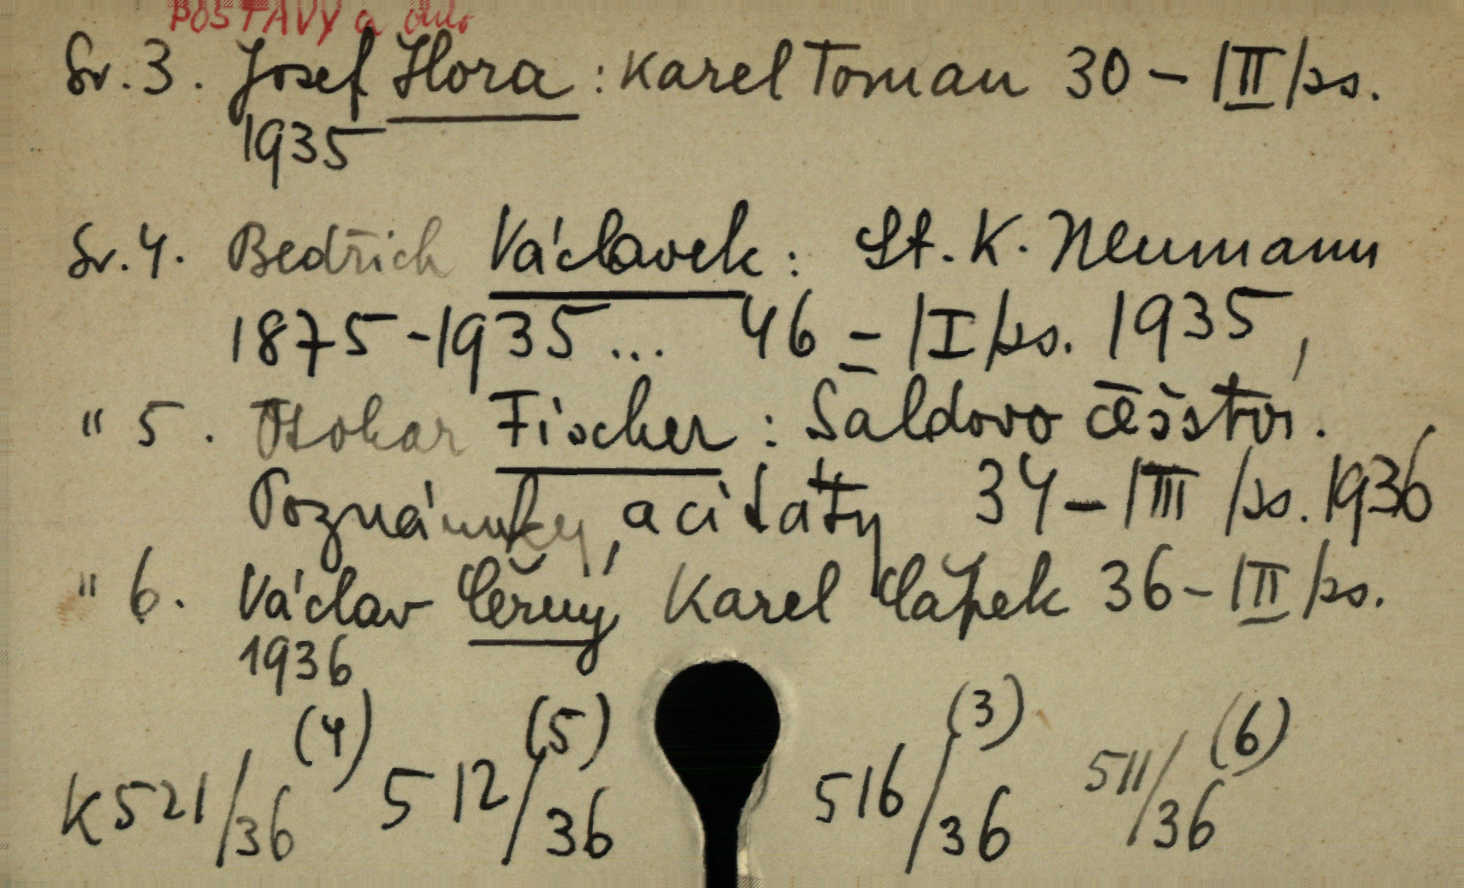 POSTAVY a dílo
Sv. 3. Josef Hora : Karel Toman 30 - |II| s.
1935
Sv. 4. Bedřich Václavek : St. K. Neumann
1875-1935... 46 - |I| s. 1935,
" 5. Otokar Fischer : Šaldovo češství.
Poznámky a citáty 34 - |III| s. 1936
" 6. Václav Černý, Karel Čapek 36 - |II| s.
1936
K 521/36 (4) 512/36 (5) 516/36 (3) 511/36 (6)